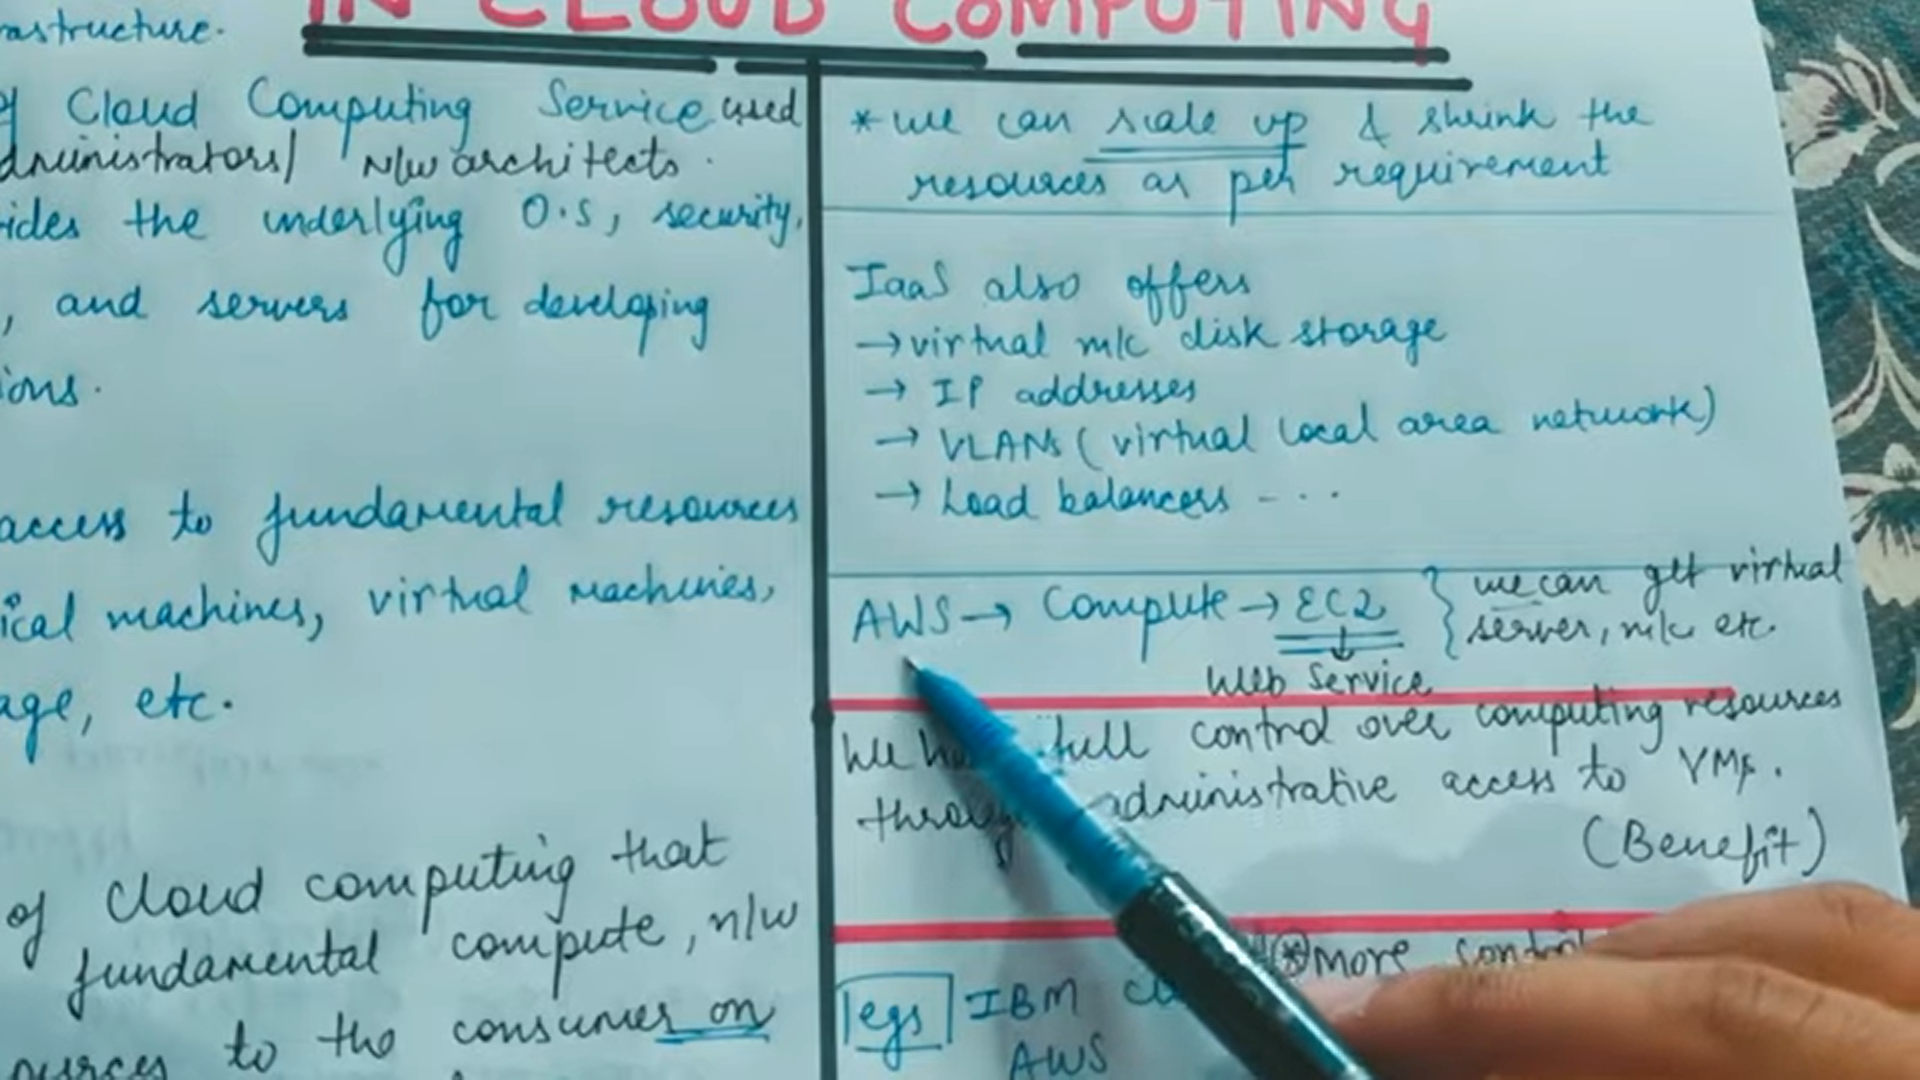 IN CLOUD COMPUTING
rastructure.
of Cloud Computing Service used
dministrators/ N/w architects.
ides the underlying O.S, security,
, and servers for developing
ions.
access to fundamental resources
ical machines, virtual machines,
age, etc.
of cloud computing that
fundamental compute, n/w
ources to the consumer on
* we can scale up & shrink the
resources as per requirement
IaaS also offers
→ virtual m/c disk storage
→ IP addresses
→ VLANs (virtual local area network)
→ Load balancers - ...
AWS → Compute → EC2 } we can get virtual
server, m/c etc.
↓
Web Service
We full control over computing resources
through administrative access to VMs.
(Benefit)
* more control
egs IBM
AWS